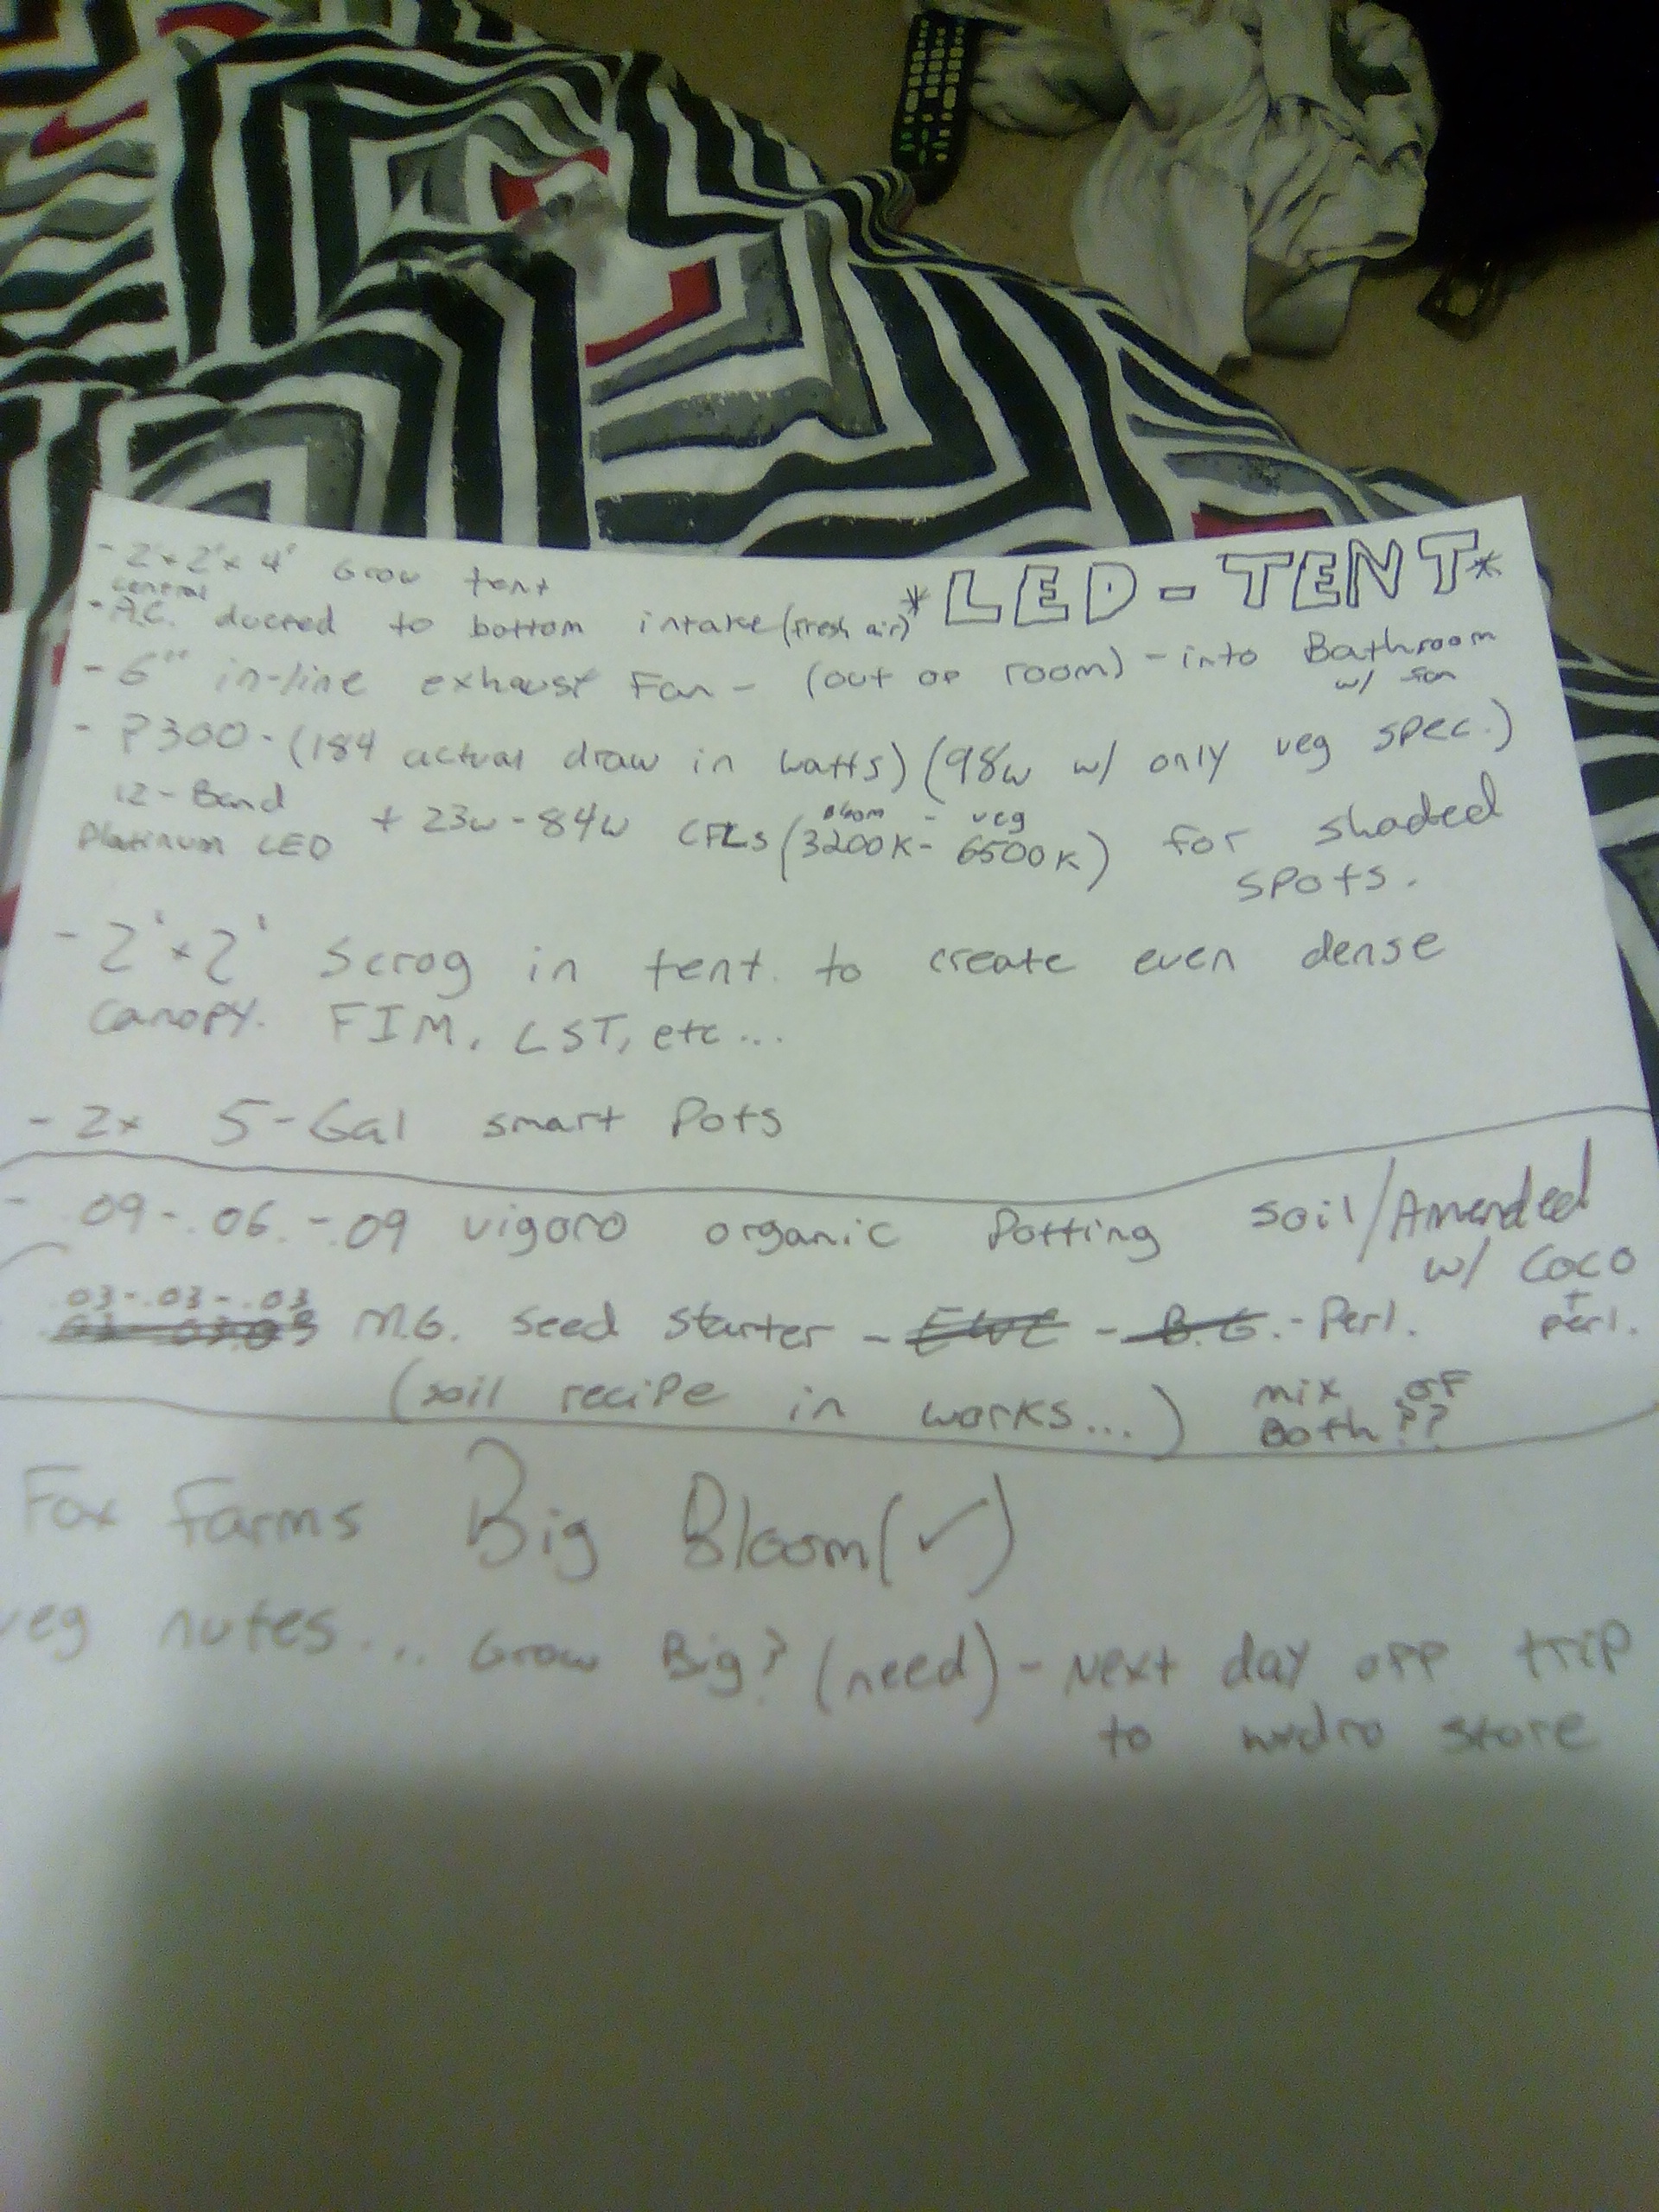 *LED-TENT*
- 2'x2'x4' Grow tent
central
- A.C. ducted to bottom intake (fresh air)
- 6" in-line exhaust Fan - (out of room) - into Bathroom
w/ fan
- P300 - (184 actual draw in watts) (98w w/ only veg spec.)
12-Band
Platinum LED
Bloom - veg
+ 23w-84w CFLs (3200K- 6500K) for shaded
spots.
- 2'x2' Scrog in tent. to create even dense
canopy. FIM, LST, etc...
- 2x 5-Gal smart Pots
- .09-.06.-.09 vigoro organic Potting soil/Amended
w/ Coco
+
perl.
.03-.03-.03
M.G. Seed Starter - EWC - B.G.-Perl.
(soil recipe in works...) mix of
Both??
Fox Farms Big Bloom (✓)
veg nutes... Grow Big? (need) - Next day off trip
to hydro store